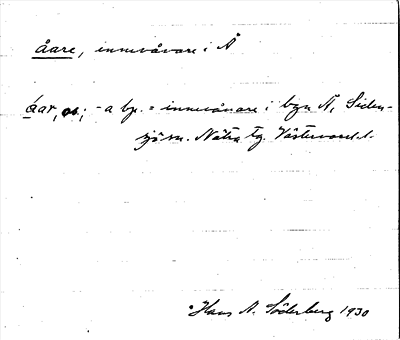 åare, innevåvare i Å
åar, m; -a bp. = innevånare i byn Å, Siden-
sjö sn. Nätra tg. Västernorrl.
Hans A. Söderberg 1930